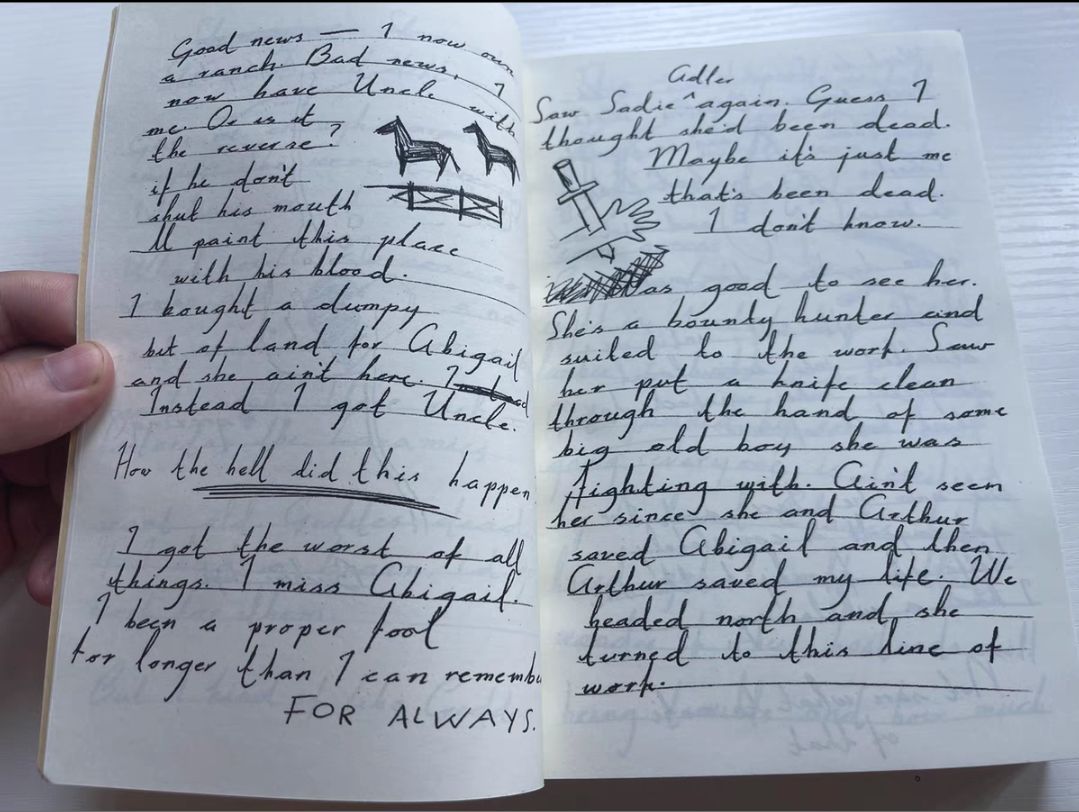 Good news — I now own
a ranch. Bad news, I
now have Uncle with
me. Or is it
the reverse?
if he don't
shut his mouth
ll paint this place
with his blood.
I bought a dumpy
bit of land for Abigail
and she ain't here.
Instead I got Uncle.
How the hell did this happen
I got the worst of all
things. I miss Abigail.
I been a proper fool
for longer than I can remembe
FOR ALWAYS.
Adler
Saw Sadie ^ again. Guess I
thought she'd been dead.
Maybe it's just me
that's been dead.
I don't know.
Was good to see her.
She's a bounty hunter and
suited to the work. Saw
her put a knife clean
through the hand of some
big old boy she was
fighting with. Ain't seen
her since she and Arthur
saved Abigail and then
Arthur saved my life. We
headed north and she
turned to this line of
work.